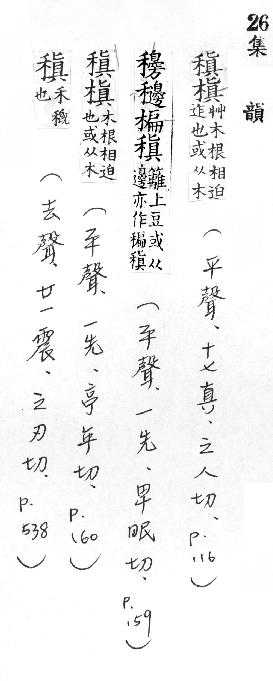 26集韻
稹槙艸木根相迫迮也或从木（平聲、十七真、之人切、p.116）
穆䆄稨稹籬上豆或从邊亦作稨稹（平聲、一先、卑眠切、p.159）
稹槙木根相迫也或从木（平聲、一先、亭年切、p.160）
稹禾穊也（去聲、廿一震、之刃切、p.538）